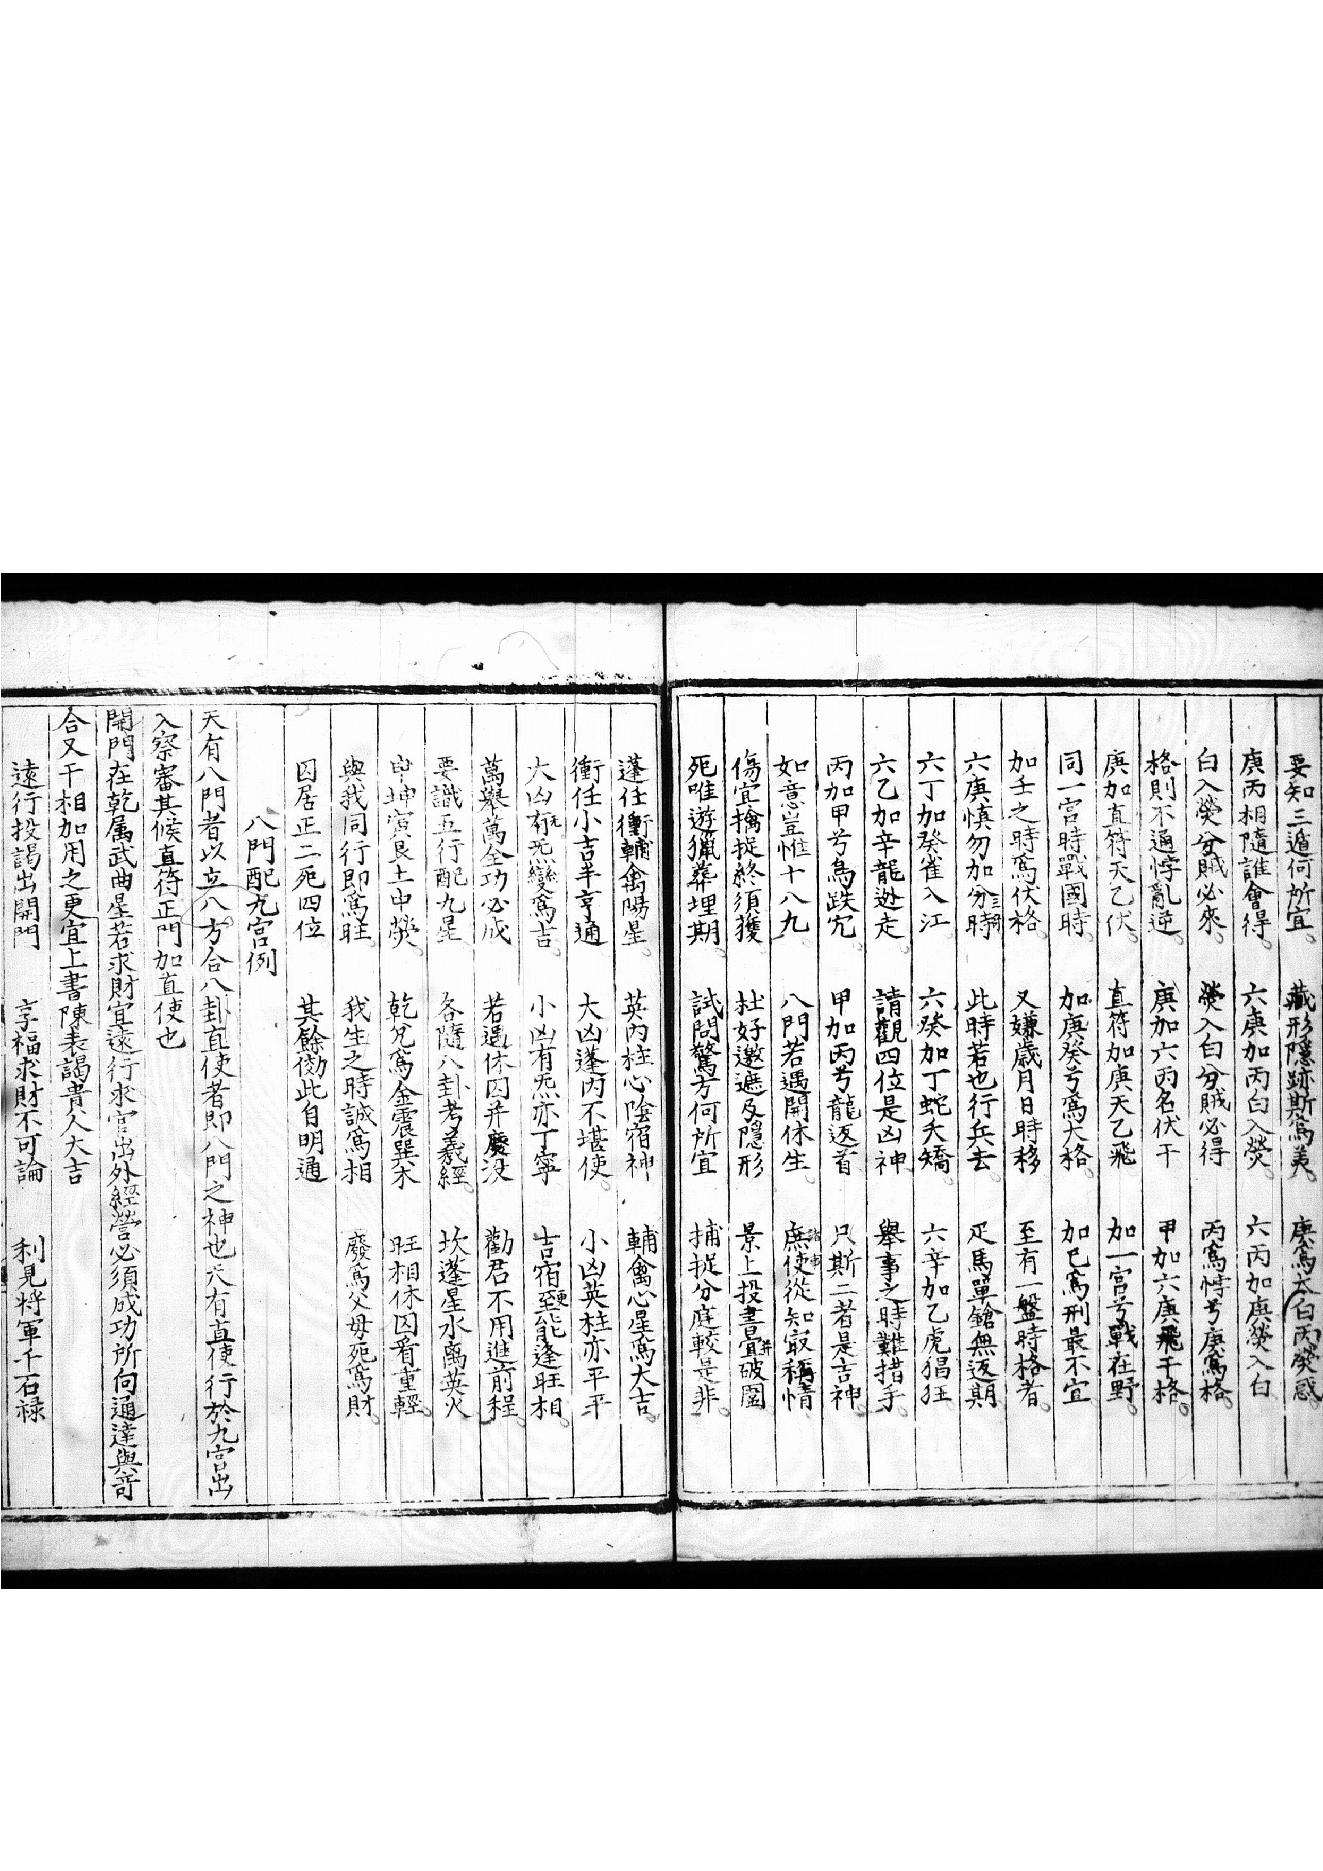 要知三遁何所宜 藏形隱跡斯爲美 庚爲太白丙熒惑
庚丙相隨誰會得 六庚加丙白入熒 六丙加庚熒入白
白入熒兮賊必來 熒入白兮賊必得 丙爲悖兮庚爲格
格則不通悖亂逆 庚加六丙名伏干 甲加六庚飛干格
庚加直符天乙伏 直符加庚天乙飛 加一宮兮戰在野
同一宮時戰國時 加庚癸兮爲大格 加己爲刑最不宜
加壬之時爲伏格 又嫌歲月日時移 至有一盤時格者
六庚慎勿加三奇時 此時若也行兵去 疋馬單鎗無返期
六丁加癸雀入江 六癸加丁蛇夭矯 六辛加乙虎猖狂
六乙加辛龍逃走 請觀四位是凶神 舉事之時難措手
丙加甲兮鳥跌穴 甲加丙兮龍返首 只斯二者是吉神
如意豈惟十八九 八門若遇開休生 庶使從知㝡稱情
傷宜擒捉終須獲 杜好邀遮及隱形 景上投書并破圍
死唯遊獵葬埋期 試問驚方何所宜 捕捉分庭較是非
蓬任衝輔禽陽星 英內柱心陰宿神 輔禽心星爲大吉
衝任小吉半亨通 大凶蓬內不堪使 小凶英柱亦平平
大凶有炁變爲吉 小凶有炁亦丁寧 吉宿更能逢旺相
萬舉萬全功必成 若遇休囚并廢没 勸君不用進前程
要識五行配九星 各隨八卦考羲經 坎蓬星水离英火
中坤寅艮土中熒 乾兌爲金震巽木 旺相休囚看重輕
與我同行即爲旺 我生之時誠爲相 廢爲父母死爲財
囚居正二死四位 其餘倣此自明通
八門配九宮例
天有八門者以立八方合八卦直使者即八門之神也天有直使行於九宮出
入察審其候直符正門加直使也
開門在乾属武曲星若求財宜遠行求官出外經營必須成功所向通達與竒
合又干相加用之更宜上書陳表謁貴人大吉
遠行投謁出開門 享福求財不可論 利見将軍千石禄